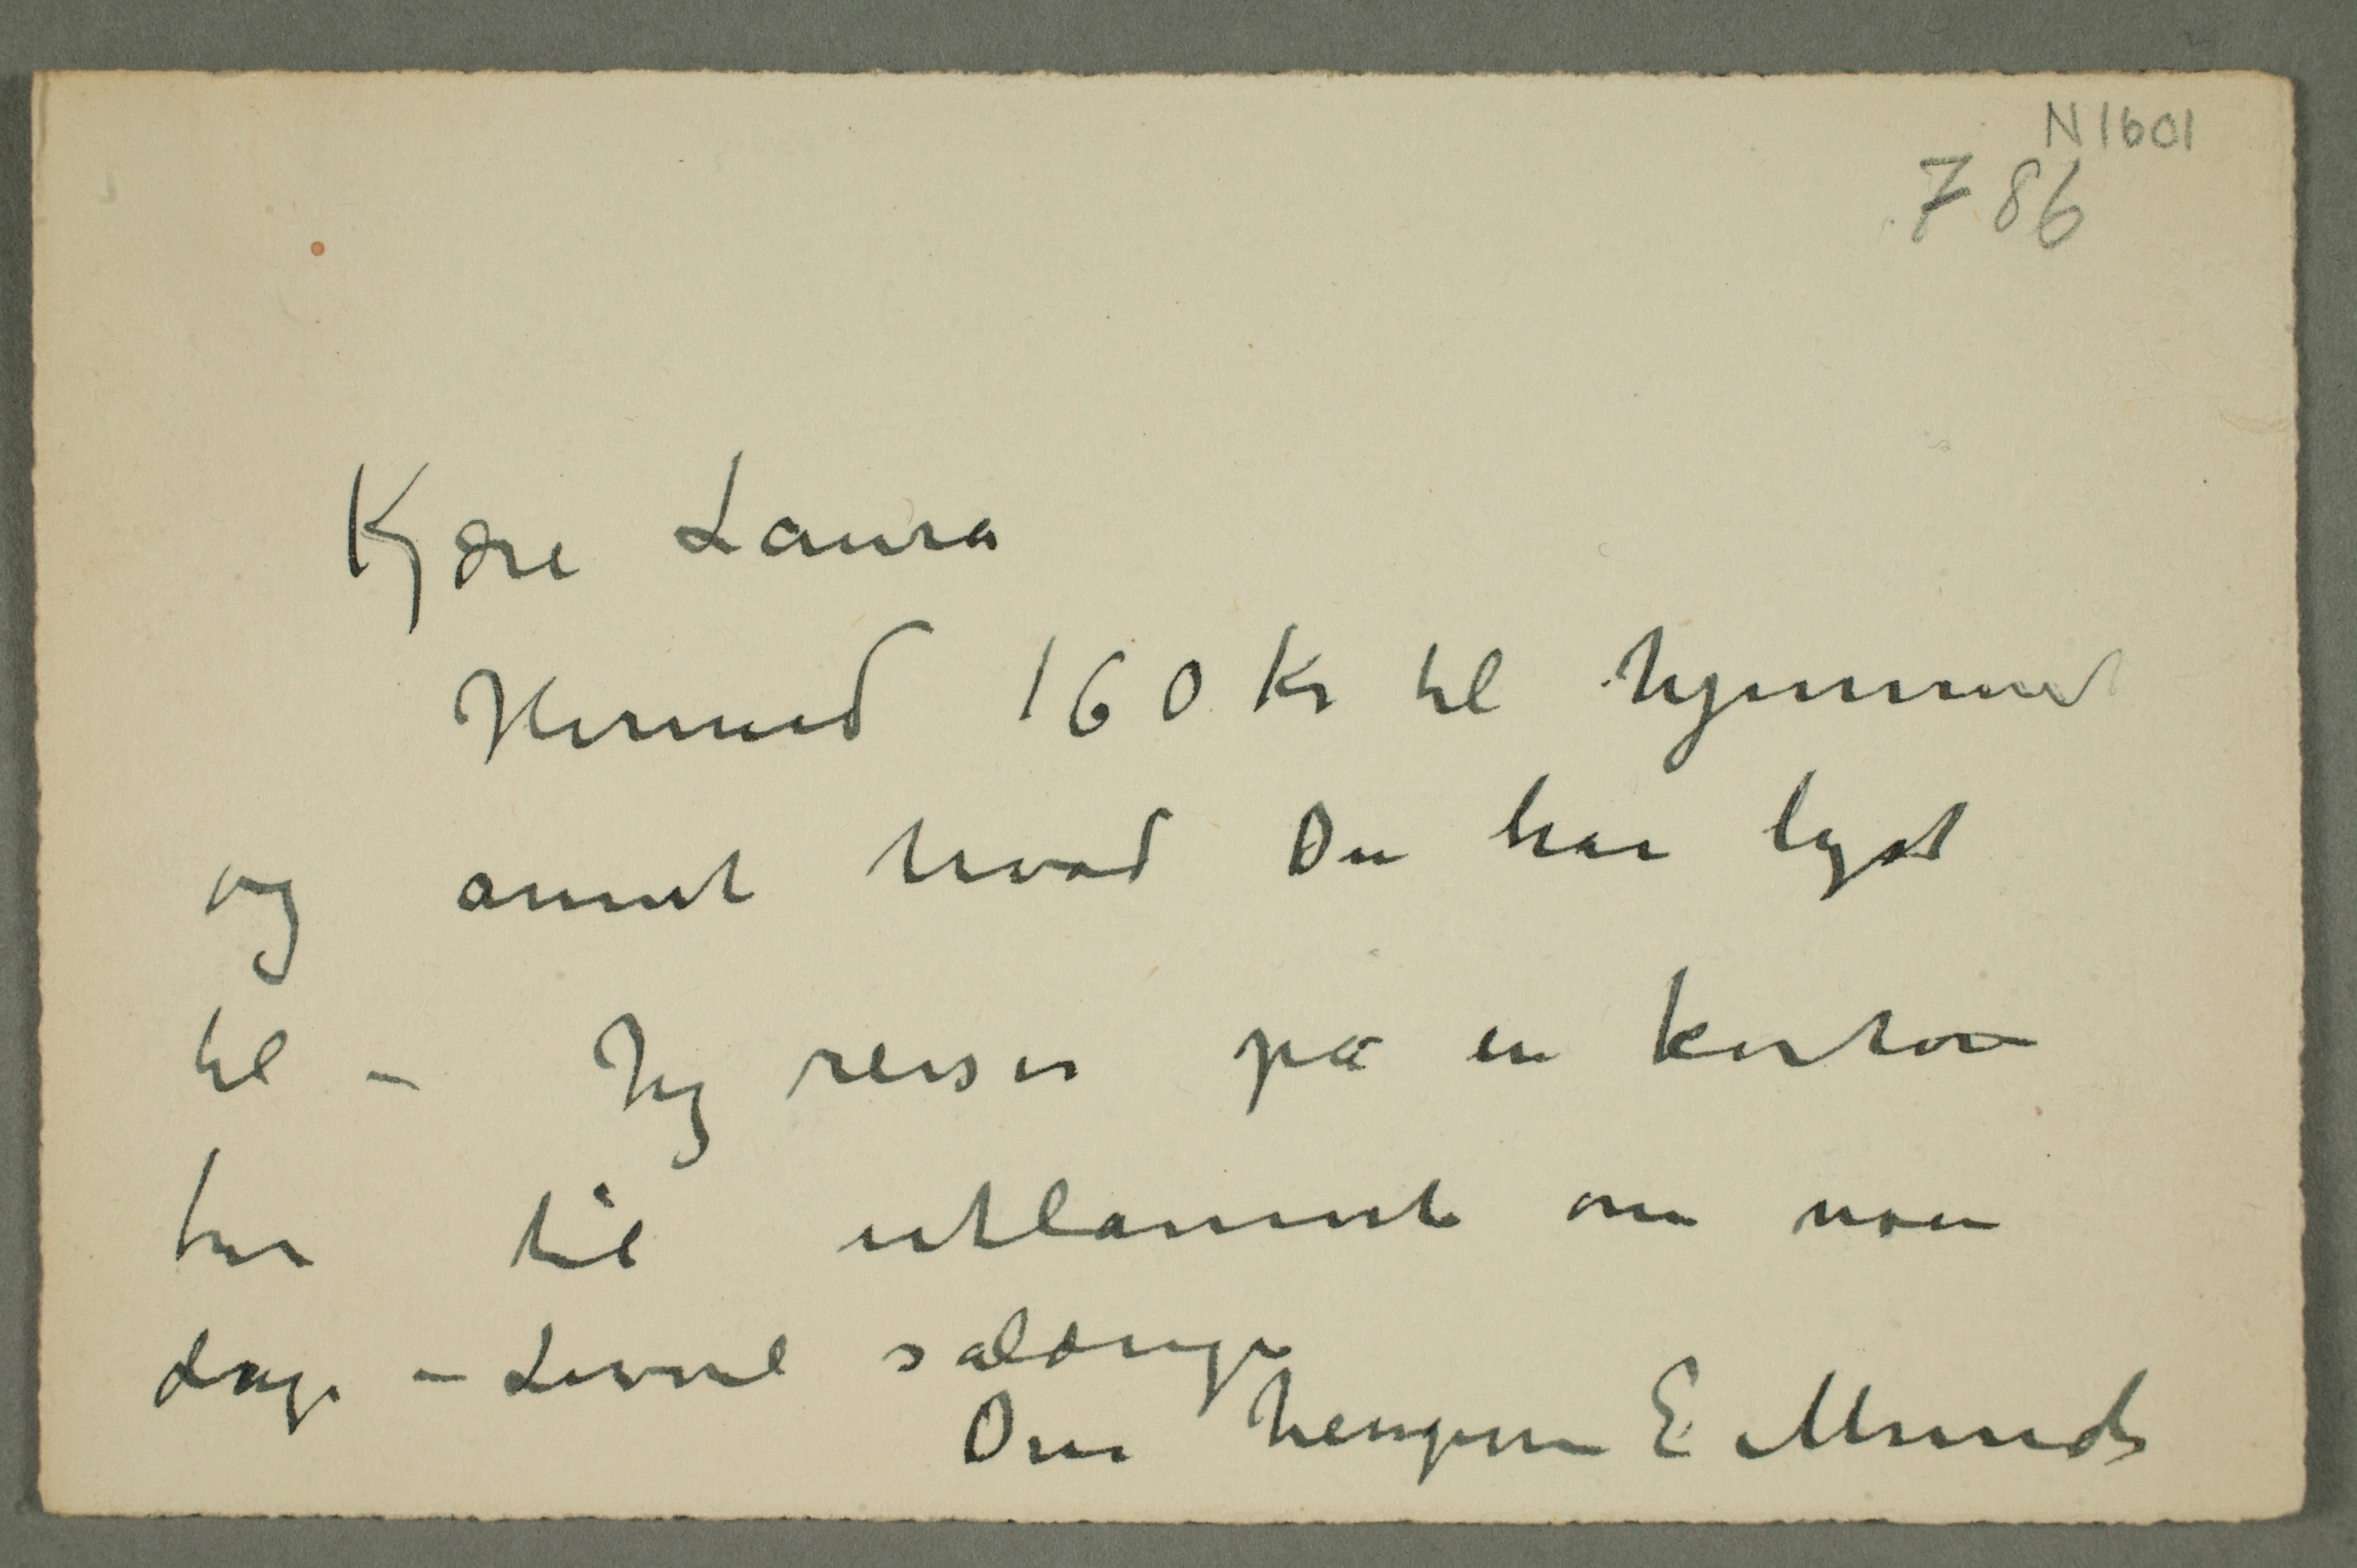 N 1601
786
Kjære Laura
Hermed 160 Kr til hjemmet
og annet hvad Du har lyst
til – Jeg reiser på en kort
tur til utlannet om noen
dage – Levvel sålænge
Din hengivne E Munch